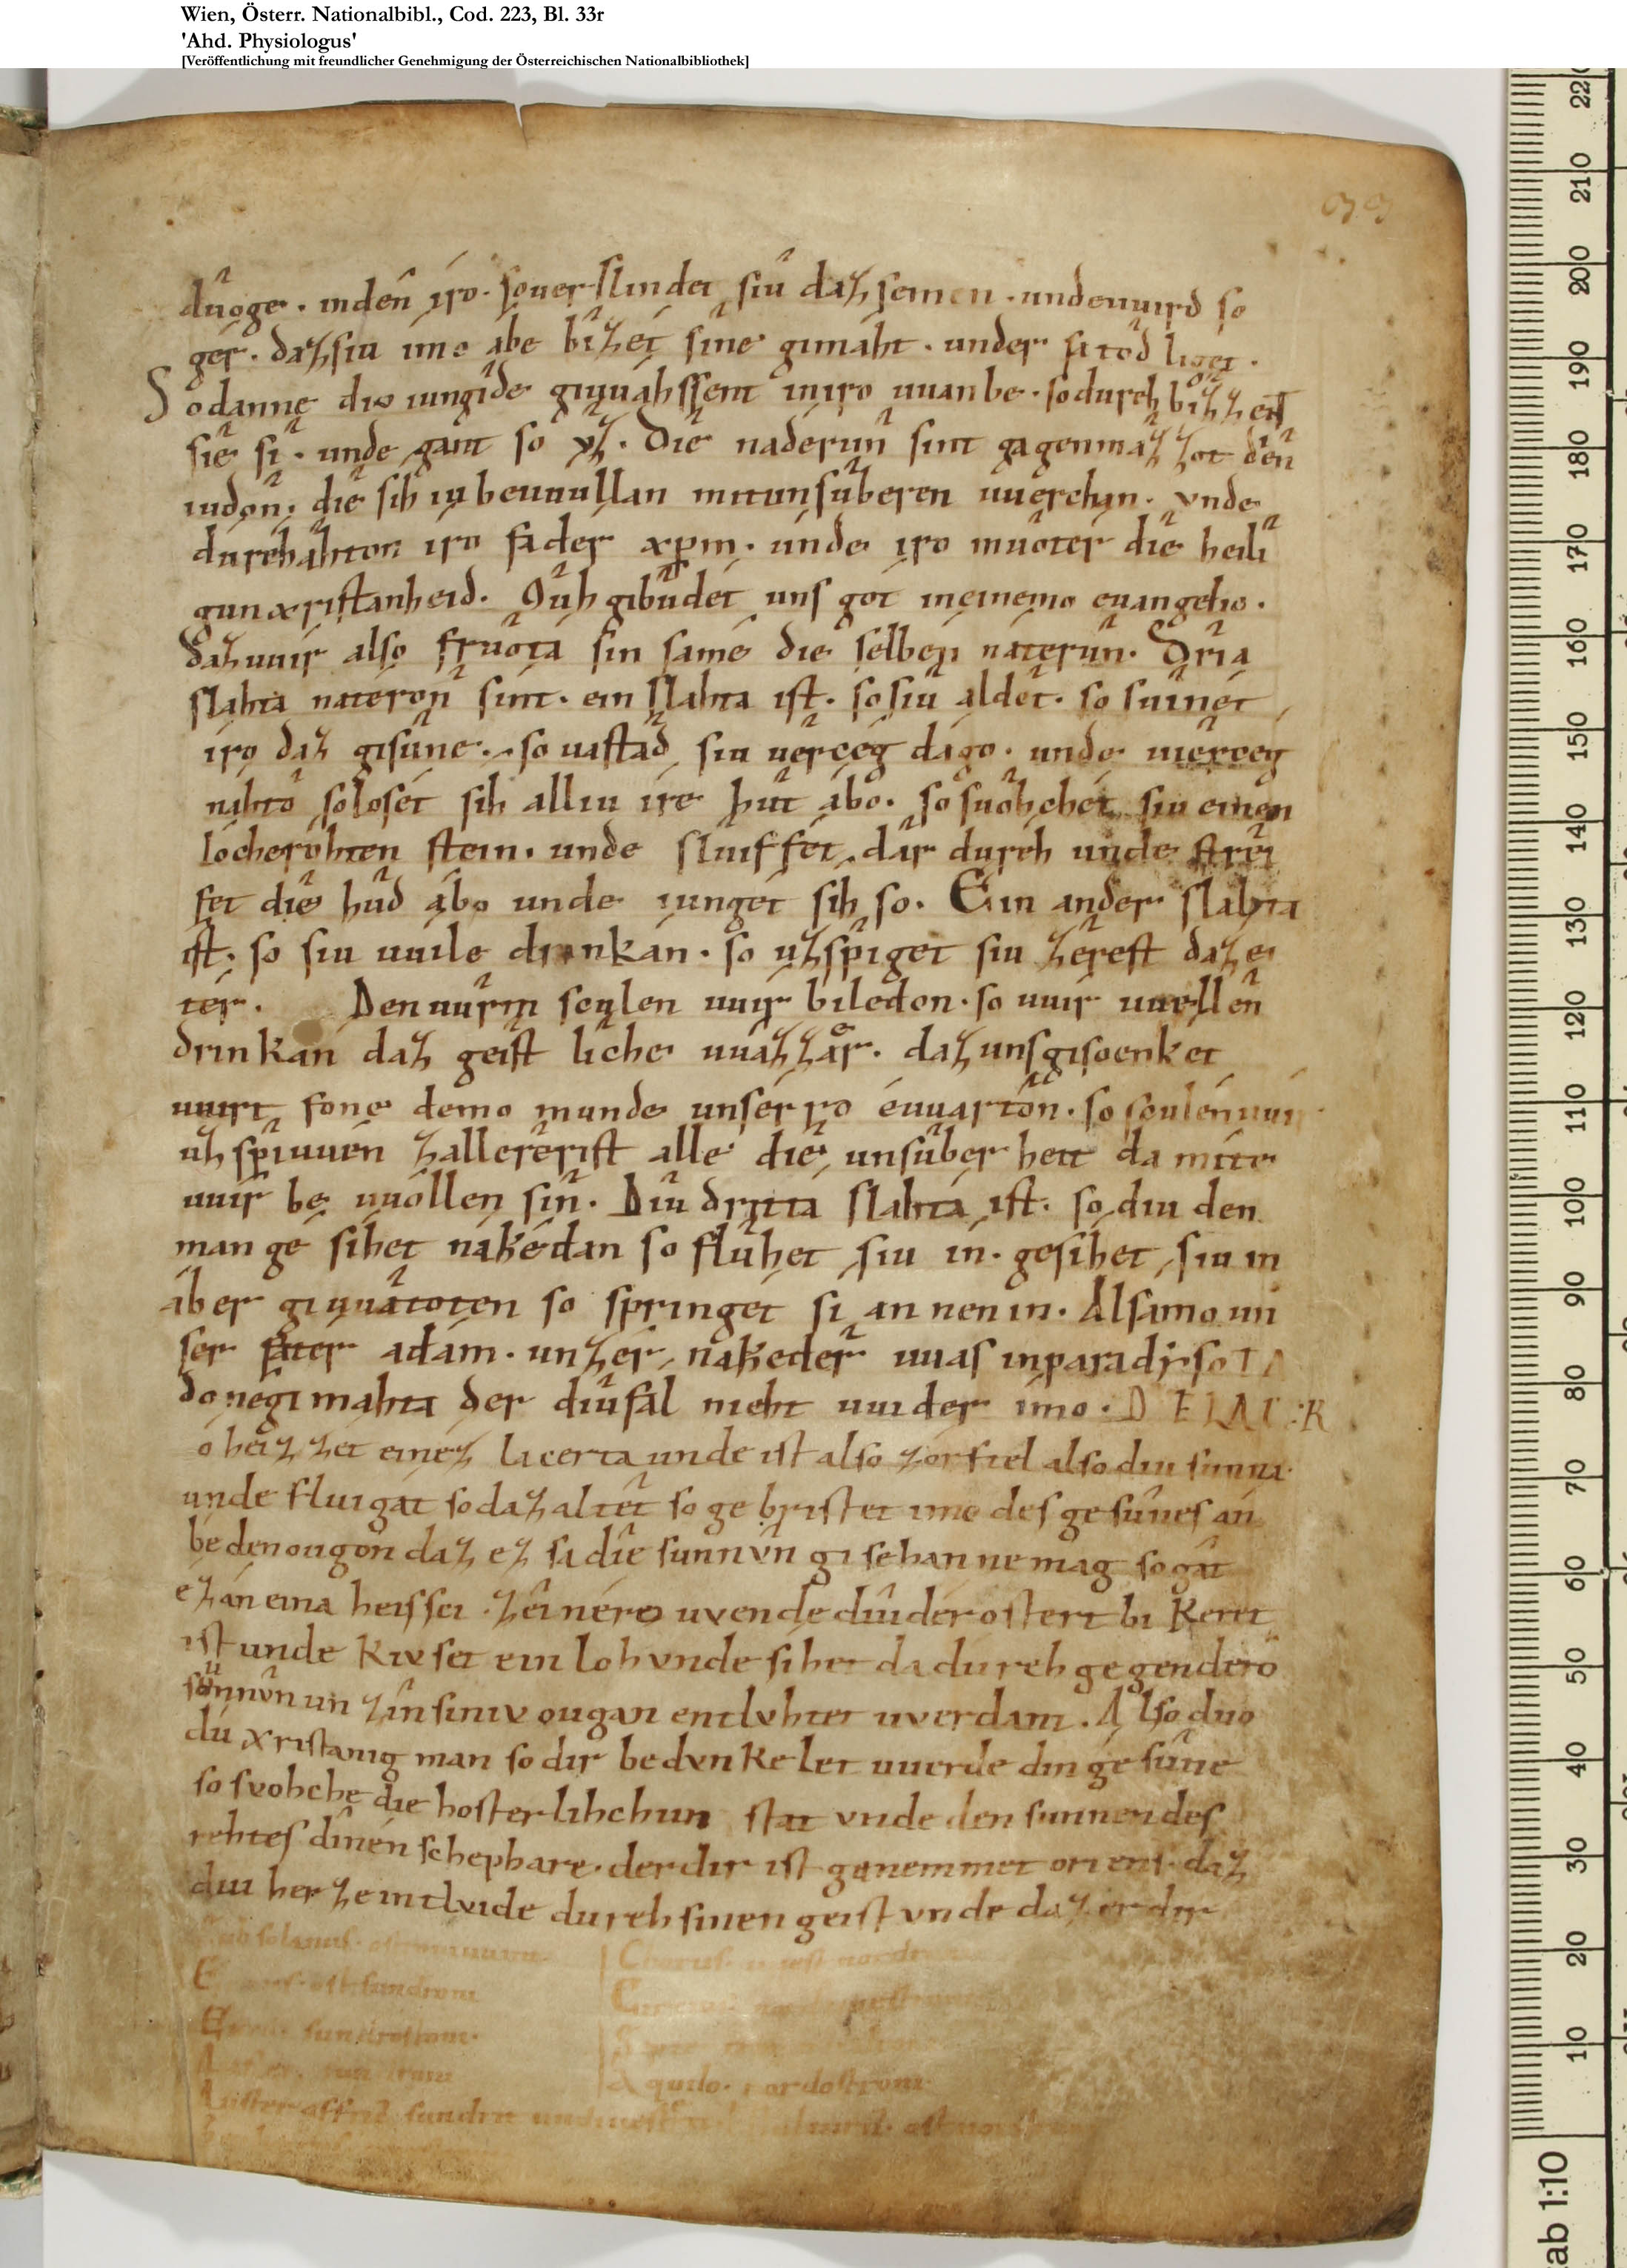 Wien, Österr. Nationalbibl., Cod. 223, Bl. 33r
'Ahd. Physiologus'
[Veröffentlichung mit freundlicher Genehmigung der Österreichischen Nationalbibliothek]
33
dûoge · indén íro · sóuerslindet siû daz semen · undeuuird so
ger · dazsiu imo ábe bîzet sine gimáht · under sa tôd liget ·
Sodanne dio iungide giuuahssent iniro uuanbe · so durehbizzent
siê si · unde gant so vz · Die naderun sint gagenmazzot dên
iudon · die sih iu beuuullan mitunsûberen uuerchan · vnde
durehahton iro fader xpm · unde iro muôter diê heili
gun xristanheid · Oûh gibudet uns got ineinemo euangelio ·
daz uuir also fruôta sin same die selben naterun · Dria
slahta nateron sint · ein slahta ist · so siu aldet · so suinet
iro daz gisûne · so uastâd siu uerceg dago · unde uierceg
nahto so loset sih alliu ire hût ábo · so suôhchet siu einen
locherohten stein · unde sluiffet dar dureh unde strei
fet diê hûd abo unde iunget sih so · Ein ander slahta
ist · so siu uuile drinkan · so uzspiget siu zerest daz ei
ter · Den uurm sculen uuir biledon · so uuir uuellên
drinkan daz geist liche uuazzer · daz uns giscenket
uuirt fone demo munde unserro éuuarton · so sculen uuir
uzspiuuen zallererist alle die unsuberheit da mite
uuir be uuollen sîn · Diu dritta slahta ist · so diu den
man ge sihet nakédan so fluhet siu in · gesihet siu in
aber giuuatoten so springet si annen in · Alsamo un
ser fater adam · unzer nakeder uuas inparadyso
do negimahta der diufal nieht uuider imo · DE LACER
TA
o heizzet einez lacerta unde ist also zorftel also diu sunna
unde fluigat so daz altêt so ge bristet imo des gesûnes an
bedenougon daz ez sa diê sunnvn gisehan nemag so gat
ez án eina heissei · zeinero uvende diu der ostert bi keret
ist unde kivset ein loh vnde sihet da dureh ge gendero
sunnvn un zin siniv ougan entlvhtet uverdant · Also duo
du xristanig man so dir bedvnkelet uuerde din gesûne
so svohche die hosterlihchun stat vnde den sunnen des
rehtes dinen schephare · derdir ist ganemmet oriens · daz
diu herze intlvide dureh sinen geist vnde daz er dir
Aquilo · nordostroni